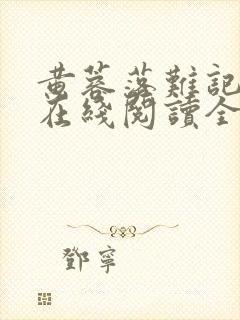 黃蓉落難記
在綫閱讀全
鄧寧